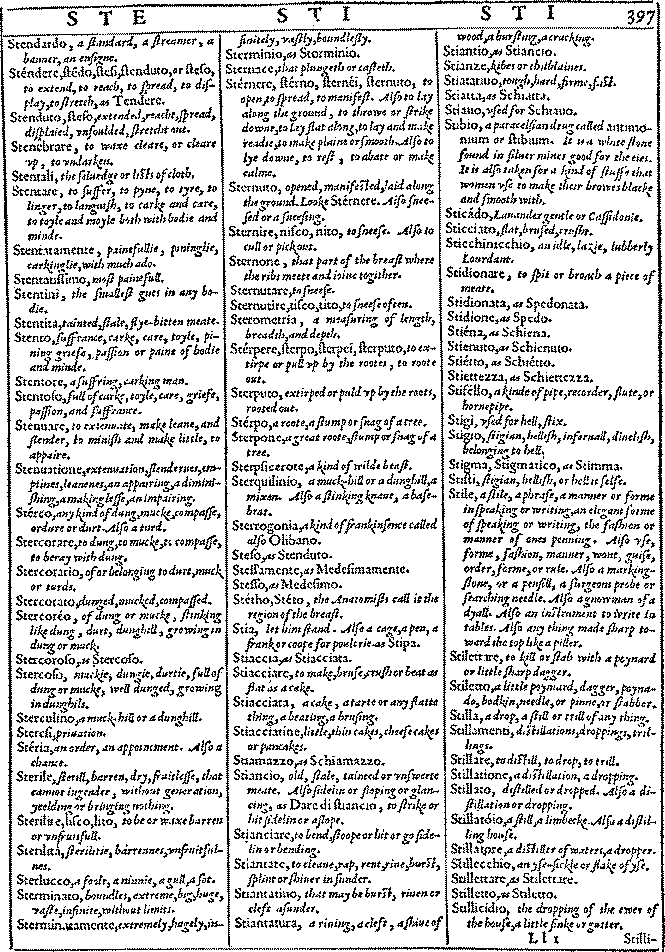 S T E S T I S T I 397
Stendardo, a standard, a streamer, a
banner, an ensigne.
Sténdere, stédo, stesi, stenduto, or steso,
to extend, to reach, to spread, to dis-
play, to stretch, as Tendere.
Stenduto, steso, extended, reacht, spread,
displaied, unfoulded, stretcht out.
Stenebrare, to waxe cleare, or cleare
vp, to vndarken.
Stentali, the saluidge or lists of cloth.
Stentare, to suffer, to pyne, to tyre, to
linger, to languish, to carke and care,
to toyle and moyle both with bodie and
minde.
Stentatamente, painefullie, poninglie,
carkinglie, with much ado.
Stentatissimo, most painefull.
Stentini, the smallest guts in any bo-
die.
Stentita, tainted, stale, flye-bitten meate.
Stento, suffrance, carke, care, toyle, pi-
ning griefe, passion or paine of bodie
and minde.
Stentore, a suffring, carking man.
Stentoso, full of carke, toyle, care, griefe,
passion, and suffrance.
Stenuare, to extenuate, make leane, and
slender, to minish and make little, to
appaire.
Stenuatione, extenuation, slendernes, em-
ptines, leanenes, an appairing, a dimini-
shing, a making lesse, an impairing.
Stérco, any kind of dung, mucke, compasse,
ordure or durt. Also a turd.
Stercorare, to dung, to mucke, to compasse,
to beray with dung.
Stercorario, of or belonging to durt, muck
or turds.
Stercorato, dunged, mucked, compassed.
Stercoréo, of dung or mucke, stinking
like dung, durt, dunghill, growing in
dung or muck.
Stercoroso, as Stercoso.
Stercoso, muckie, dungie, durtie, full of
dung or mucke, well dunged, growing
in dunghils.
Sterculino, a muck-hill or a dunghill.
Steresi, priuation.
Stéria, an order, an appointment. Also a
chance.
Sterile, sterill, barren, dry, fruitlesse, that
cannot ingender, without generation,
yeelding or bringing nothing.
Sterilire, lisco, lito, to be or waxe barren
or vnfruitfull.
Sterilità, sterilitie, barrennes, vnfruitful-
nes.
Sterlucco, a foole, a ninnie, a gull, a sot.
Sterminato, boundles, extreme, big, huge,
vaste, infinite, without limits.
Sterminatamente, extremely, hugely, in-
finitely, vastly, boundlesly.
Sterminio, as Storminio.
Sternace, that plungeth or casteth.
Stérnere, stérno, sternéi, sternuto, to
open, to spread, to manifest. Also to lay
along the ground, to throwe or strike
downe, to lay flat along, to lay and make
readie, to make plaine or smooth. Also to
lye downe, to rest, to abate or make
calme.
Sternuto, opened, manifested, laid along
the ground. Looke Stérnere. Also snee-
sed or a sneesing.
Sternire, nisco, nito, to sneese. Also to
cull or pick out.
Sternone, that part of the breast where
the ribs meete and ioine together.
Sternutare, to sneese.
Sternutire, tisco, tito, to sneese often.
Sterometria, a measuring of length,
breadth, and depth.
Stérpere, sterpo, sterpei, sterputo, to ex-
tirpe or pull vp by the roots, to roote
out.
Sterputo, extirped or puld vp by the roots,
rooted out.
Stérpo, a roote, a stump or snag of a tree.
Sterpone, a great roote, stump or snag of a
tree.
Sterpsicerote, a kind of wilde beast.
Sterquilinio, a muck-hill or a dunghill, a
mixen. Also a stinking knaue, a base-
brat.
Sterrogonia, a kind of frankinsence called
also Olibano.
Steso, as Stenduto.
Stessamente, as Medesimamente.
Stesso, as Medesimo.
Stétho, Stéto, the Anatomists call it the
region of the breast.
Stia, let him stand. Also a cage, a pen, a
frank or coope for poultrie as Stipa.
Stiaccia, as Stiacciata.
Stiacciare, to make, bruse, crush or beat as
flat as a cake.
Stiacciata, a cake, a tarte or any flatte
thing, a beating, a brusing.
Stiacciatine, little, thin cakes, cheese cakes
or pancakes.
Stiamazzo, as Schiamazzo.
Stiancio, old, stale, tainted or vnsweete
meate. Also sidelin or sloping or glan-
cing, as Dare di stiancio, to strike or
hit sidelin or aslope.
Stianciare, to bend, stoope or bit or go side-
lin or bending.
Stiantare, to cleaue, rap, rent, riue, burst,
splint or shiuer in sunder.
Stiantatiuo, that may be burst, riuen or
cleft asunder.
Stiantatura, a riuing, a cleft, a shiue of
wood, a bursting, a cracking.
Stiantio, as Stiancio.
Stianze, kibes or chilblaines.
Stiatatiuo, tough, hard, firme, fast.
Stiatta, as Schiatta.
Stiauo, vsed for Schiauo.
Stibio, a paracelsian drug called antimo-
nium or stibium. It is a white stone
found in siluer mines good for the eies.
It is also taken for a kind of stuffe that
women vse to make their browes blacke
and smooth with.
Sticádo, Lauander gentle or Cassidonie.
Sticciato, flat, brused, crusht.
Sticchinicchio, an idle, lazie, lubberly
Lourdant.
Stidionare, to spit or broach a piece of
meate.
Stidionata, as Spedonata.
Stidione, as Spedo.
Stiéna, as Schiena.
Stienuto, as Schienuto.
Stiétto, as Schiétto.
Stiettezza, as Schiettezza.
Stifello, a kinde of pipe, recorder, flute, or
hornepipe.
Stigi, vsed for hell, stix.
Stigio, stigian, hellish, infernall, diuelish,
belonging to hell.
Stigma, Stigmatico, as Stimma.
Stisti, stigian, hellish, or hell it selfe.
Stile, a stile, a phrase, a manner or forme
in speaking or writing, an elegant forme
of speaking or writing, the fashion or
manner of ones penning. Also vse,
forme, fashion, manner, wont, guise,
order, forme, or rule. Also a marking-
stone, or a pensill, a surgeons probe or
searching needle. Also a gnomon of a
dyall. Also an instrument to write in
tables. Also any thing made sharp to-
ward the top like a piller.
Stilettare, to kill or stab with a poynard
or little sharp dagger.
Stiletto, a little poynard, dagger, poyna-
do, bodkin, needle, or pinne, or stabber.
Stilla, a drop, a still or trill of any thing.
Stillamenti, distillations, droppings, tril-
lings.
Stillare, to distill, to drop, to trill.
Stillatione, a distillation, a dropping.
Stillato, distelled or dropped. Also a di-
stillation or dropping.
Stillatóio, a still, a limbecke. Also a distil-
ling house.
Stillatore, a distiller of waters, a dropper.
Stillecchio, an yse-sickle or flake of yse.
Stillettare, as Stilettare.
Stilletto, as Stiletto.
Stillicidio, the dropping of the eues of
the house, a little sinke or gutter.
L l 1 Stilli-